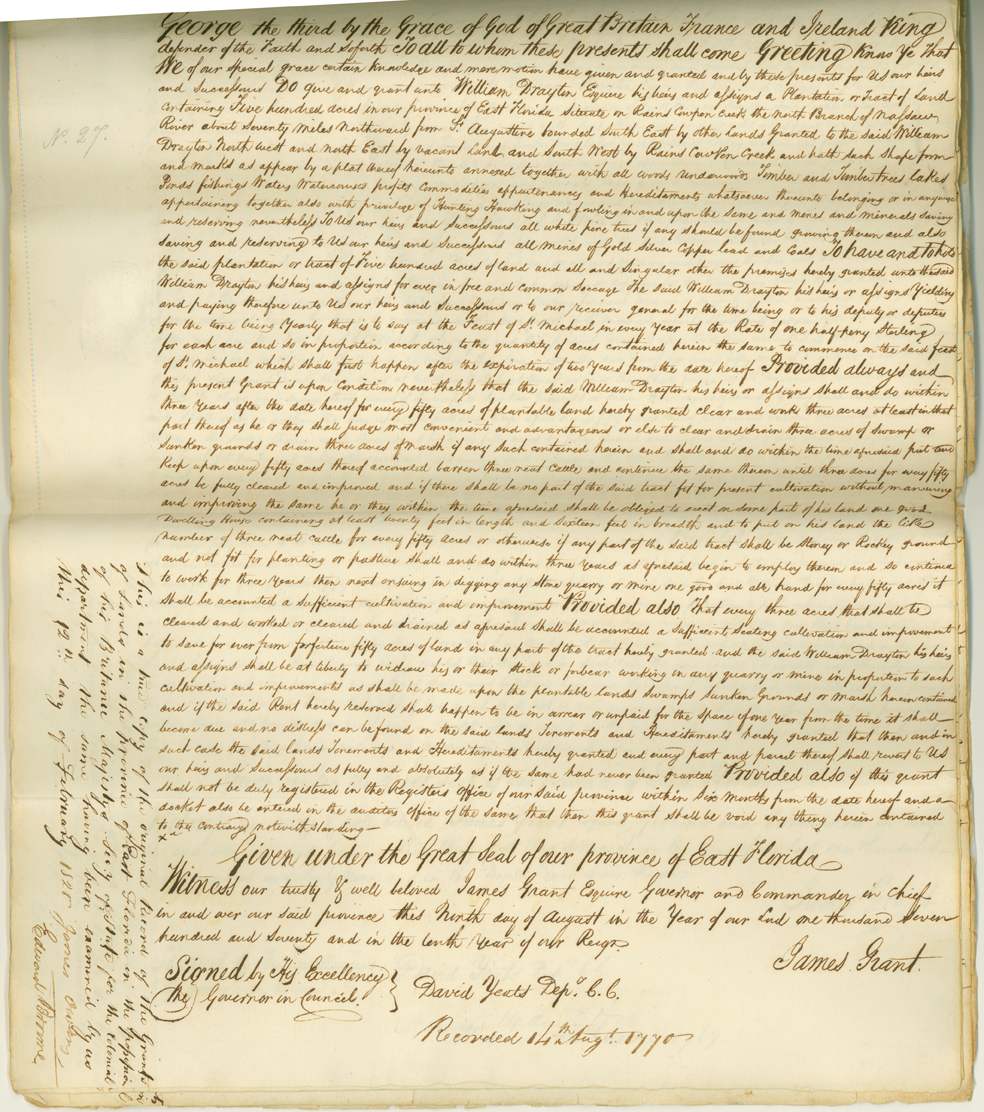 George the third by the Grace of God of Great Britain France and Ireland King
defender of the Faith and soforth To all to whom these presents shall come Greeting Know Ye That
We of our special grace certain knowledge and mere motion have given and granted and by these presents for Us our heirs
and Successours Do give and grant unto William Drayton Esquire his heirs and assigns a Plantation or Tract of Land
containing Five hundred acres in our province of East Florida Situate on Rains Cowpen Creek the north Branch of Nassau
River about Seventy Miles Northward from St. Augustine bounded South East by other Lands Granted to the said William
Drayton North West and north East by vacant Land and South West by Rains Cowpen Creek and hath such shape form
and marks as appear by a plat thereof hereunto annexed together with all woods underwoods Timber and Timbertrees lakes
Ponds fishings Waters Watercourses profits Commodities appurtenances and Hereditaments whatsoever thereunto belonging or in anywise
appertaining together also with privilege of Hunting Hawking and fowling in and upon the Same and mines and minerals saving
and reserving nevertheless To Us our heirs and Successours all white pine trees if any should be found growing thereon and also
saving and reserving to Us our heirs and Successours all mines of Gold Silver Copper lead and Coals To have and to hold
the said plantation or tract of Five hundred acres of land and all and Singular other the premises hereby granted unto the said
William Drayton his heirs and assigns for ever in free and common Soccage The said William Drayton his heirs or assigns Yielding
and paying therefore unto Us our heirs and Successours or to our receiver general for the time being or to his deputy or deputies
for the time being Yearly that is to say at the Feast of St. Michael in every year at the Rate of one half-peny Sterling
for each acre and so in proportion according to the quantity of acres contained herein the same to commence on the said feast
of St. michael which shall first happen after the expiration of two Years from the date hereof Provided always and
this present Grant is upon Condition nevertheless that the said William Drayton his heirs or assigns shall and do within
three Years after the date hereof for every fifty acres of plantable land hereby granted clear and work three acres at least in that
part thereof as he or they shall judge most convenient and advantageous or else to clear and drain three acres of Swamp or
Sunken grounds or drain three acres of Marsh if any such contained herein and shall and do within the time aforesaid put and
keep upon every fifty acres thereof accounted barren three neat Cattle and continue the same thereon until three acres for every fifty
acres be fully cleared and improved and if there shall be no part of the said tract fit for present cultivation without manuring
and improving the same he or they within the time aforesaid shall be obliged to erect on some part of his land one good
dwelling House containing at least twenty feet in length and sixteen feet in breadth and to put on his land the like
number of three neat cattle for every fifty acres or otherwise if any part of the said tract shall be Stoney or Rockey ground
and not fit for planting or pasture shall and do within three Years as aforesaid begin to employ thereon and so continue
to work for three Years then next ensuing in digging any Stone quarry or mine one good and able hand for every fifty acres it
shall be accounted a sufficient cultivation and improvement Provided also That every three acres that shall be
cleared and worked or cleared and drained as aforesaid shall be accounted a Sufficient Seating cultivation and improvement
to save for ever from forfeiture fifty acres of land in any part of the tract hereby granted and the said William Drayton his heirs
and assigns shall be at liberty to withdraw his or their Stock or forbear working in any quarry or mine in proportion to such
cultivation and improvements as shall be made upon the plantable lands Swamps Sunken Grounds or Marsh herein contained
and if the said Rent hereby reserved shall happen to be in arrear or unpaid for the space of one year from the time it shall
become due and no distress can be found on the said lands Tenements and Hereditaments hereby granted that then and in
such case the said lands Tenements and Hereditaments hereby granted and every part and parcel thereof shall revert to Us
our heirs and Successours as fully and absolutely as if the same had never been granted Provided also if this grant
shall not be duly registered in the Registers office of our said province within Six Months from the date hereof and a
docket also be entered in the auditors office of the same that then this grant shall be void any thing herein contained
to the contrary notwithstanding
Given under the Great Seal of our province of East Florida
Witness our trusty & well beloved James Grant Esquire Governor and Commander in chief
in and over our said province this Ninth day of August in the Year of our Lord one thousand seven
hundred and Seventy and in the tenth Year of our Reign
James Grant.
Signed by His Excellency
the Governor in Council.
David Yeats Depy. C. C.
Recorded 14th Augt. 1770
No. 27.
This is a true copy of the original Record of the Grants
of Lands in the province of East Florida in the possession
of his Britannic Majestys Secy of State for the Colonial
department the same having been examined by us
this 12th day of February 1828
James Owens
Edward Broome